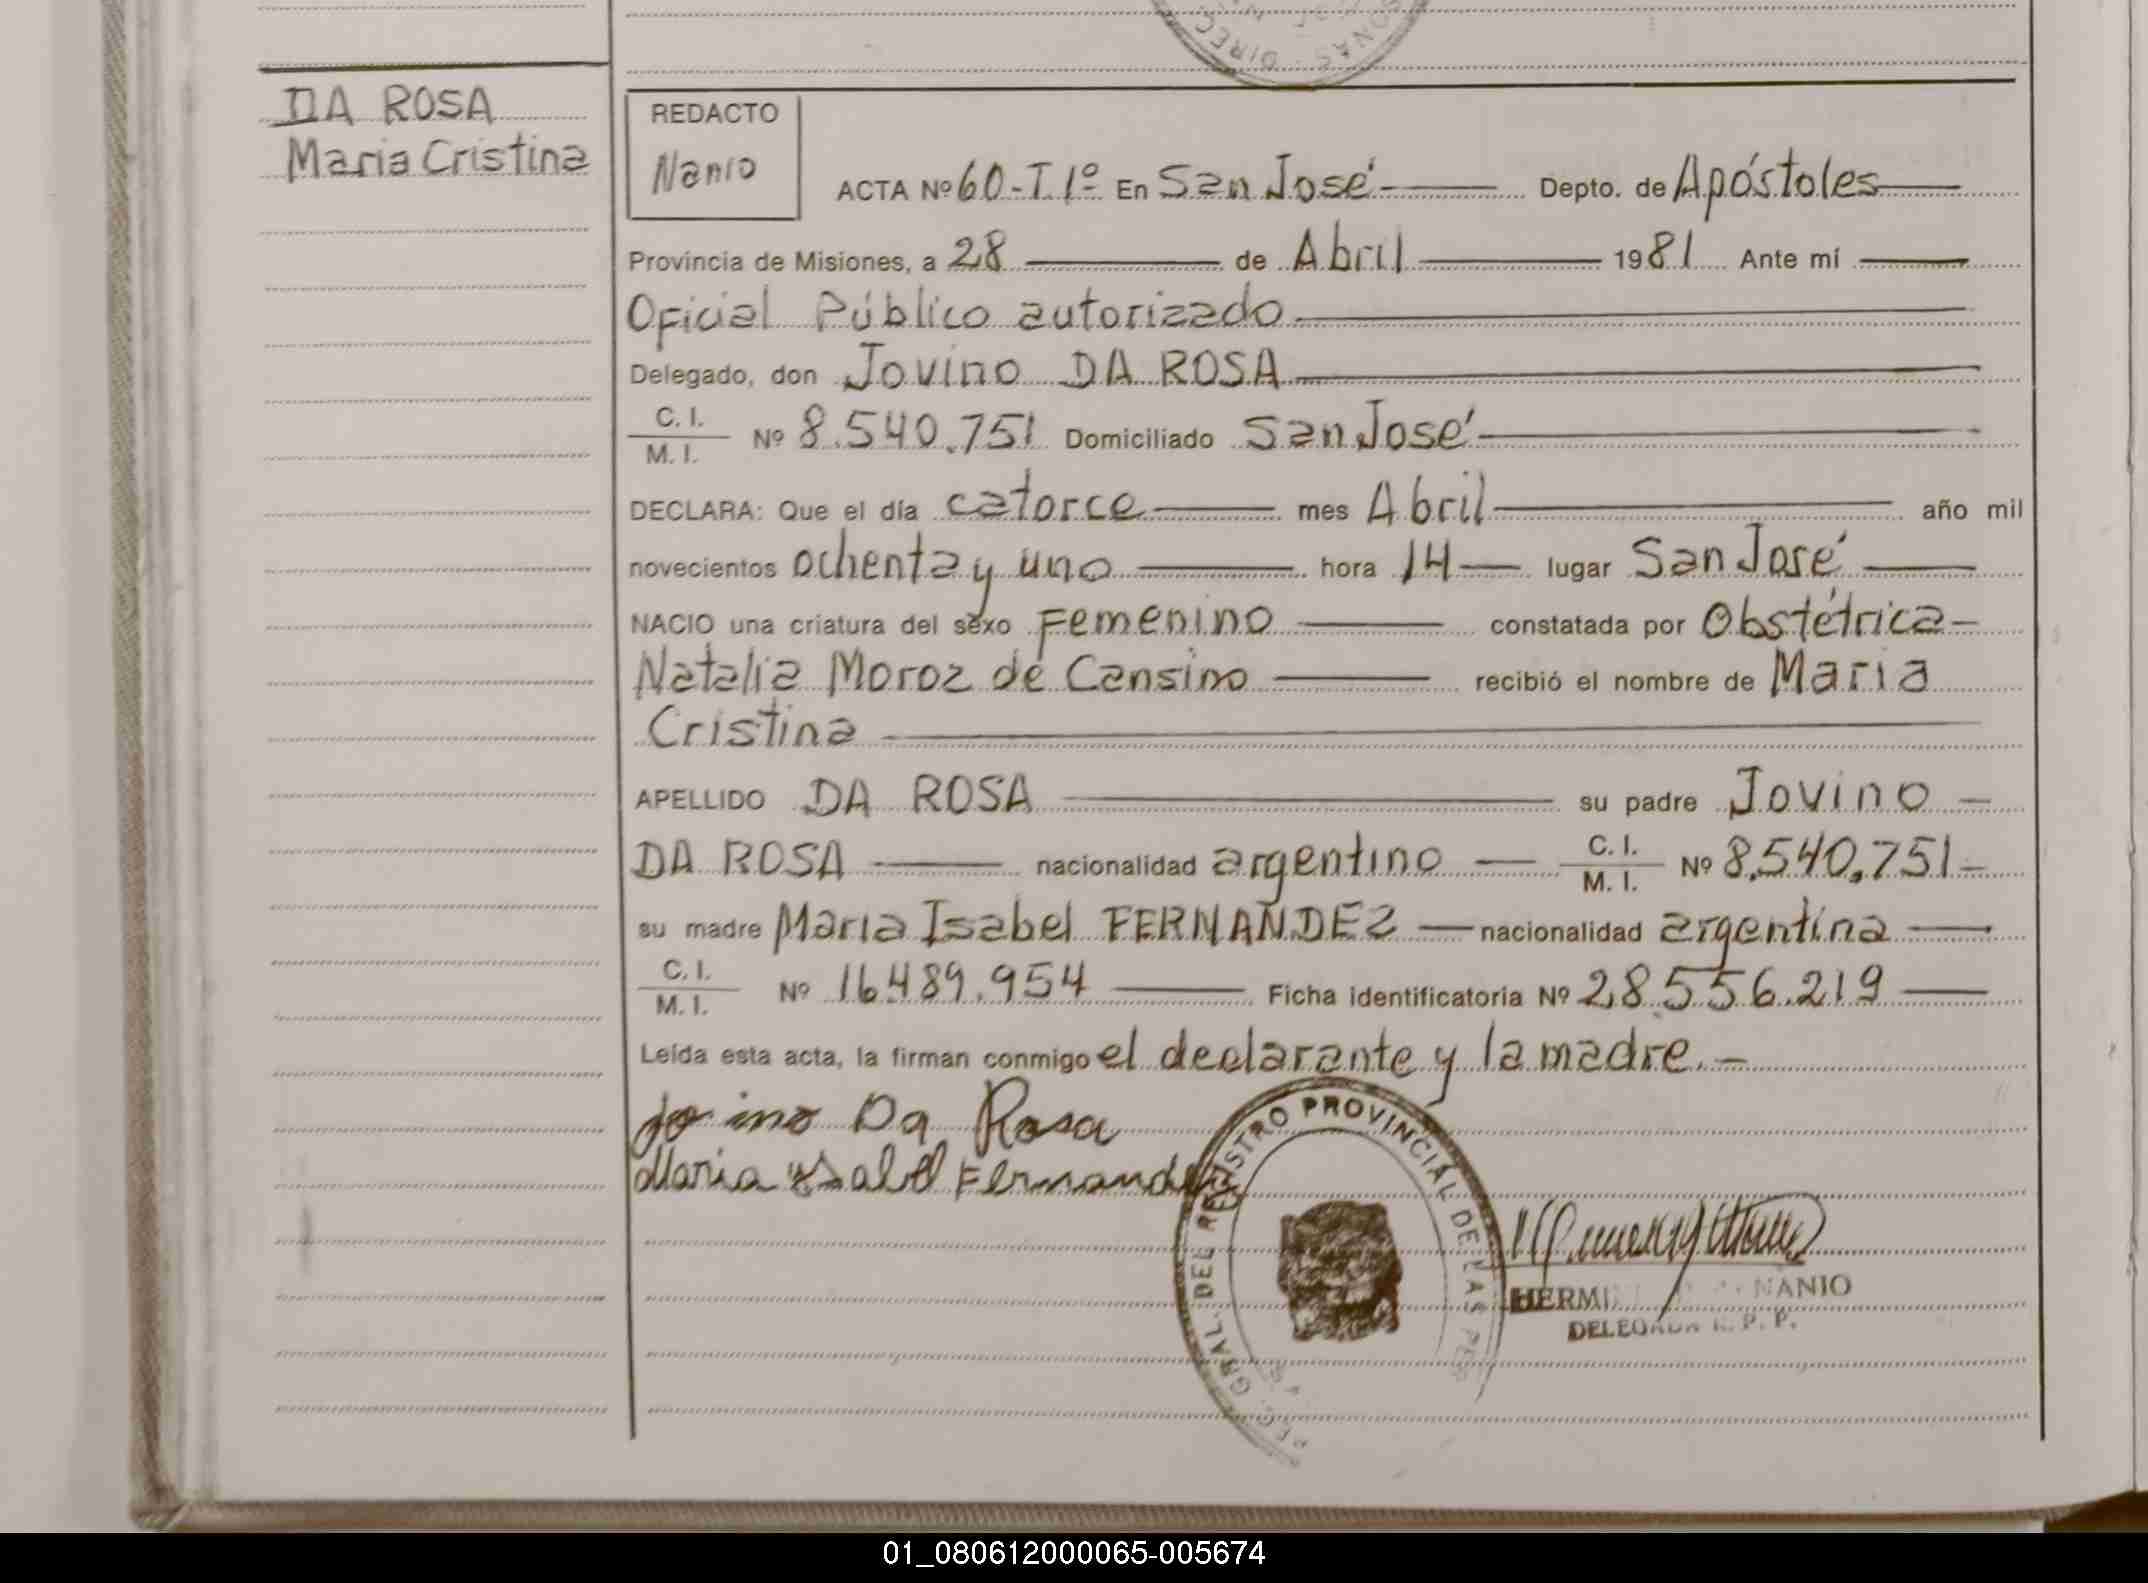 DA ROSA
Maria Cristina
REDACTO
Nanio
ACTA Nº 60-T.1º En San José Depto. de Apóstoles
Provincia de Misiones, a 28 de Abril 1981 Ante mí
Oficial Público autorizado
Delegado, don Jovino DA ROSA
C. I.
M. I. Nº 8.540.751 Domiciliado San José
DECLARA: Que el día catorce mes Abril año mil
novecientos ochenta y uno hora 14 lugar San José
NACIO una criatura del sexo Femenino constatada por Obstétrica
Natalia Moroz de Cansino recibió el nombre de Maria
Cristina
APELLIDO DA ROSA su padre Jovino
DA ROSA nacionalidad argentino C. I. M. I. Nº 8.540.751
su madre Maria Isabel FERNANDEZ nacionalidad argentina
C. I.
M. I. Nº 16.489.954 Ficha identificatoria Nº 28.556.219
Leída esta acta, la firman conmigo el declarante y la madre.
Jovino Da Rosa
Maria Ysabel Fernandez
GRAL. DEL REGISTRO PROVINCIAL DE LAS PERS
NANIO
DELEGADA R. P. P.
01_080612000065-005674